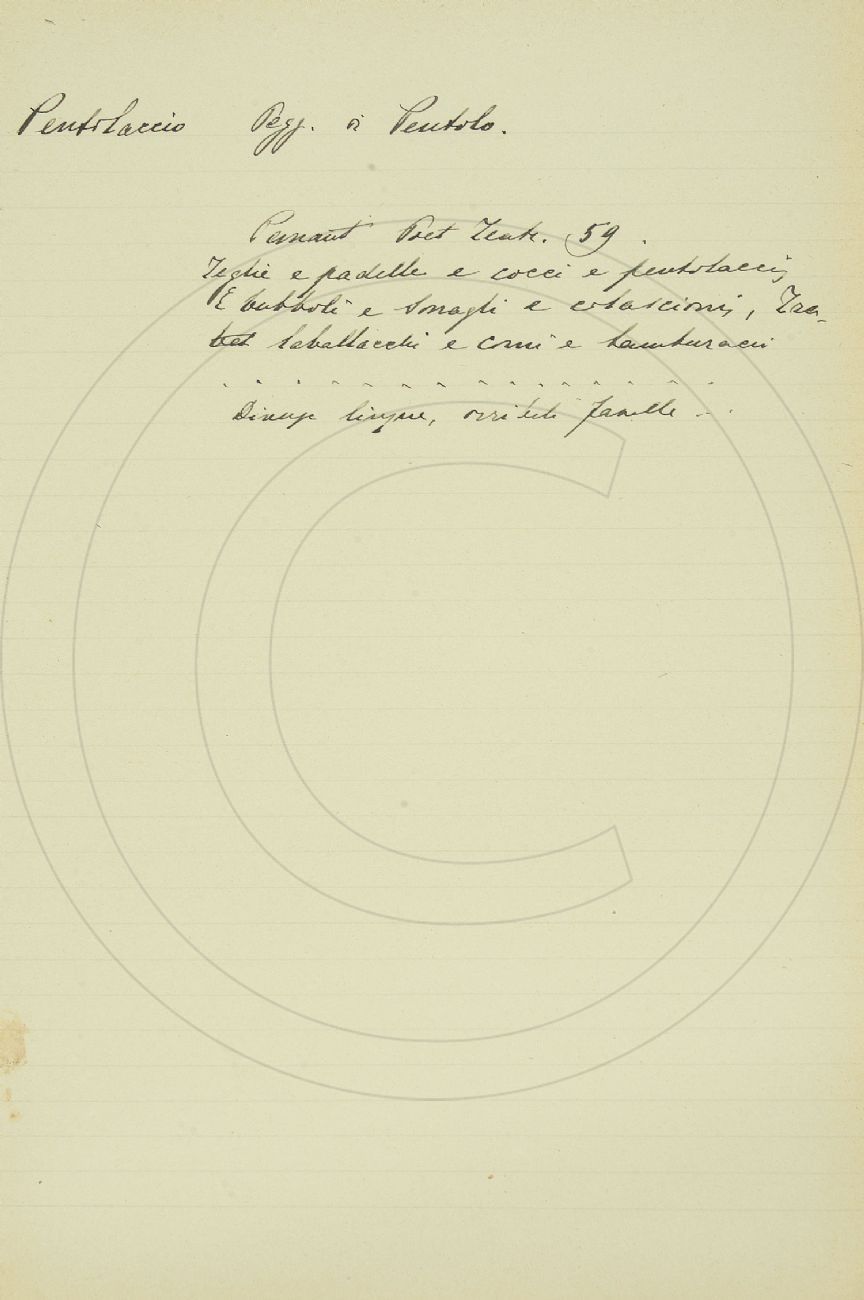 Pentolaccio Pegg. di Pentolo.
Poet Teatr. 59.
Teglie e padelle e cocci e pentolacci,
E bubboli e sonagli e colascioni,
taballacchi e corni e tamburacci
. . . . . . . . . . . . . .
Diverse lingue, orribili favelle . . .